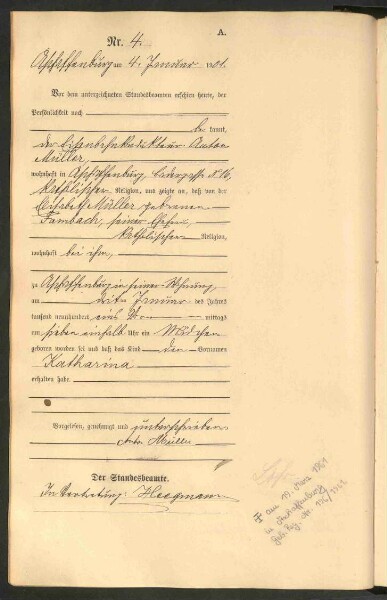 A.
Nr. 4.
Aschaffenburg am 4. Januar 1901.
Vor dem unterzeichneten Standesbeamten erschien heute, der
Persönlichkeit nach
be kannt,
der Anton
Müller,
wohnhaft in Aschaffenburg,
katholischer Religion, und zeigte an, daß von der
Elisabetha Müller gebornen
Fambach, seiner Ehefrau,
katholischer Religion,
wohnhaft bei ihm,
zu Aschaffenburg in seiner Wohnung,
am dritten Januar des Jahres
tausend neunhundert eins Vor mittags
um sieben einhalb Uhr ein Mädchen
geboren worden sei und daß das Kind den Vornamen
Katharina
erhalten habe.
Vorgelesen, genehmigt und unterschrieben
Anton Müller
Der Standesbeamte.
In Vertretung:
am 19.
in Aschaffenburg